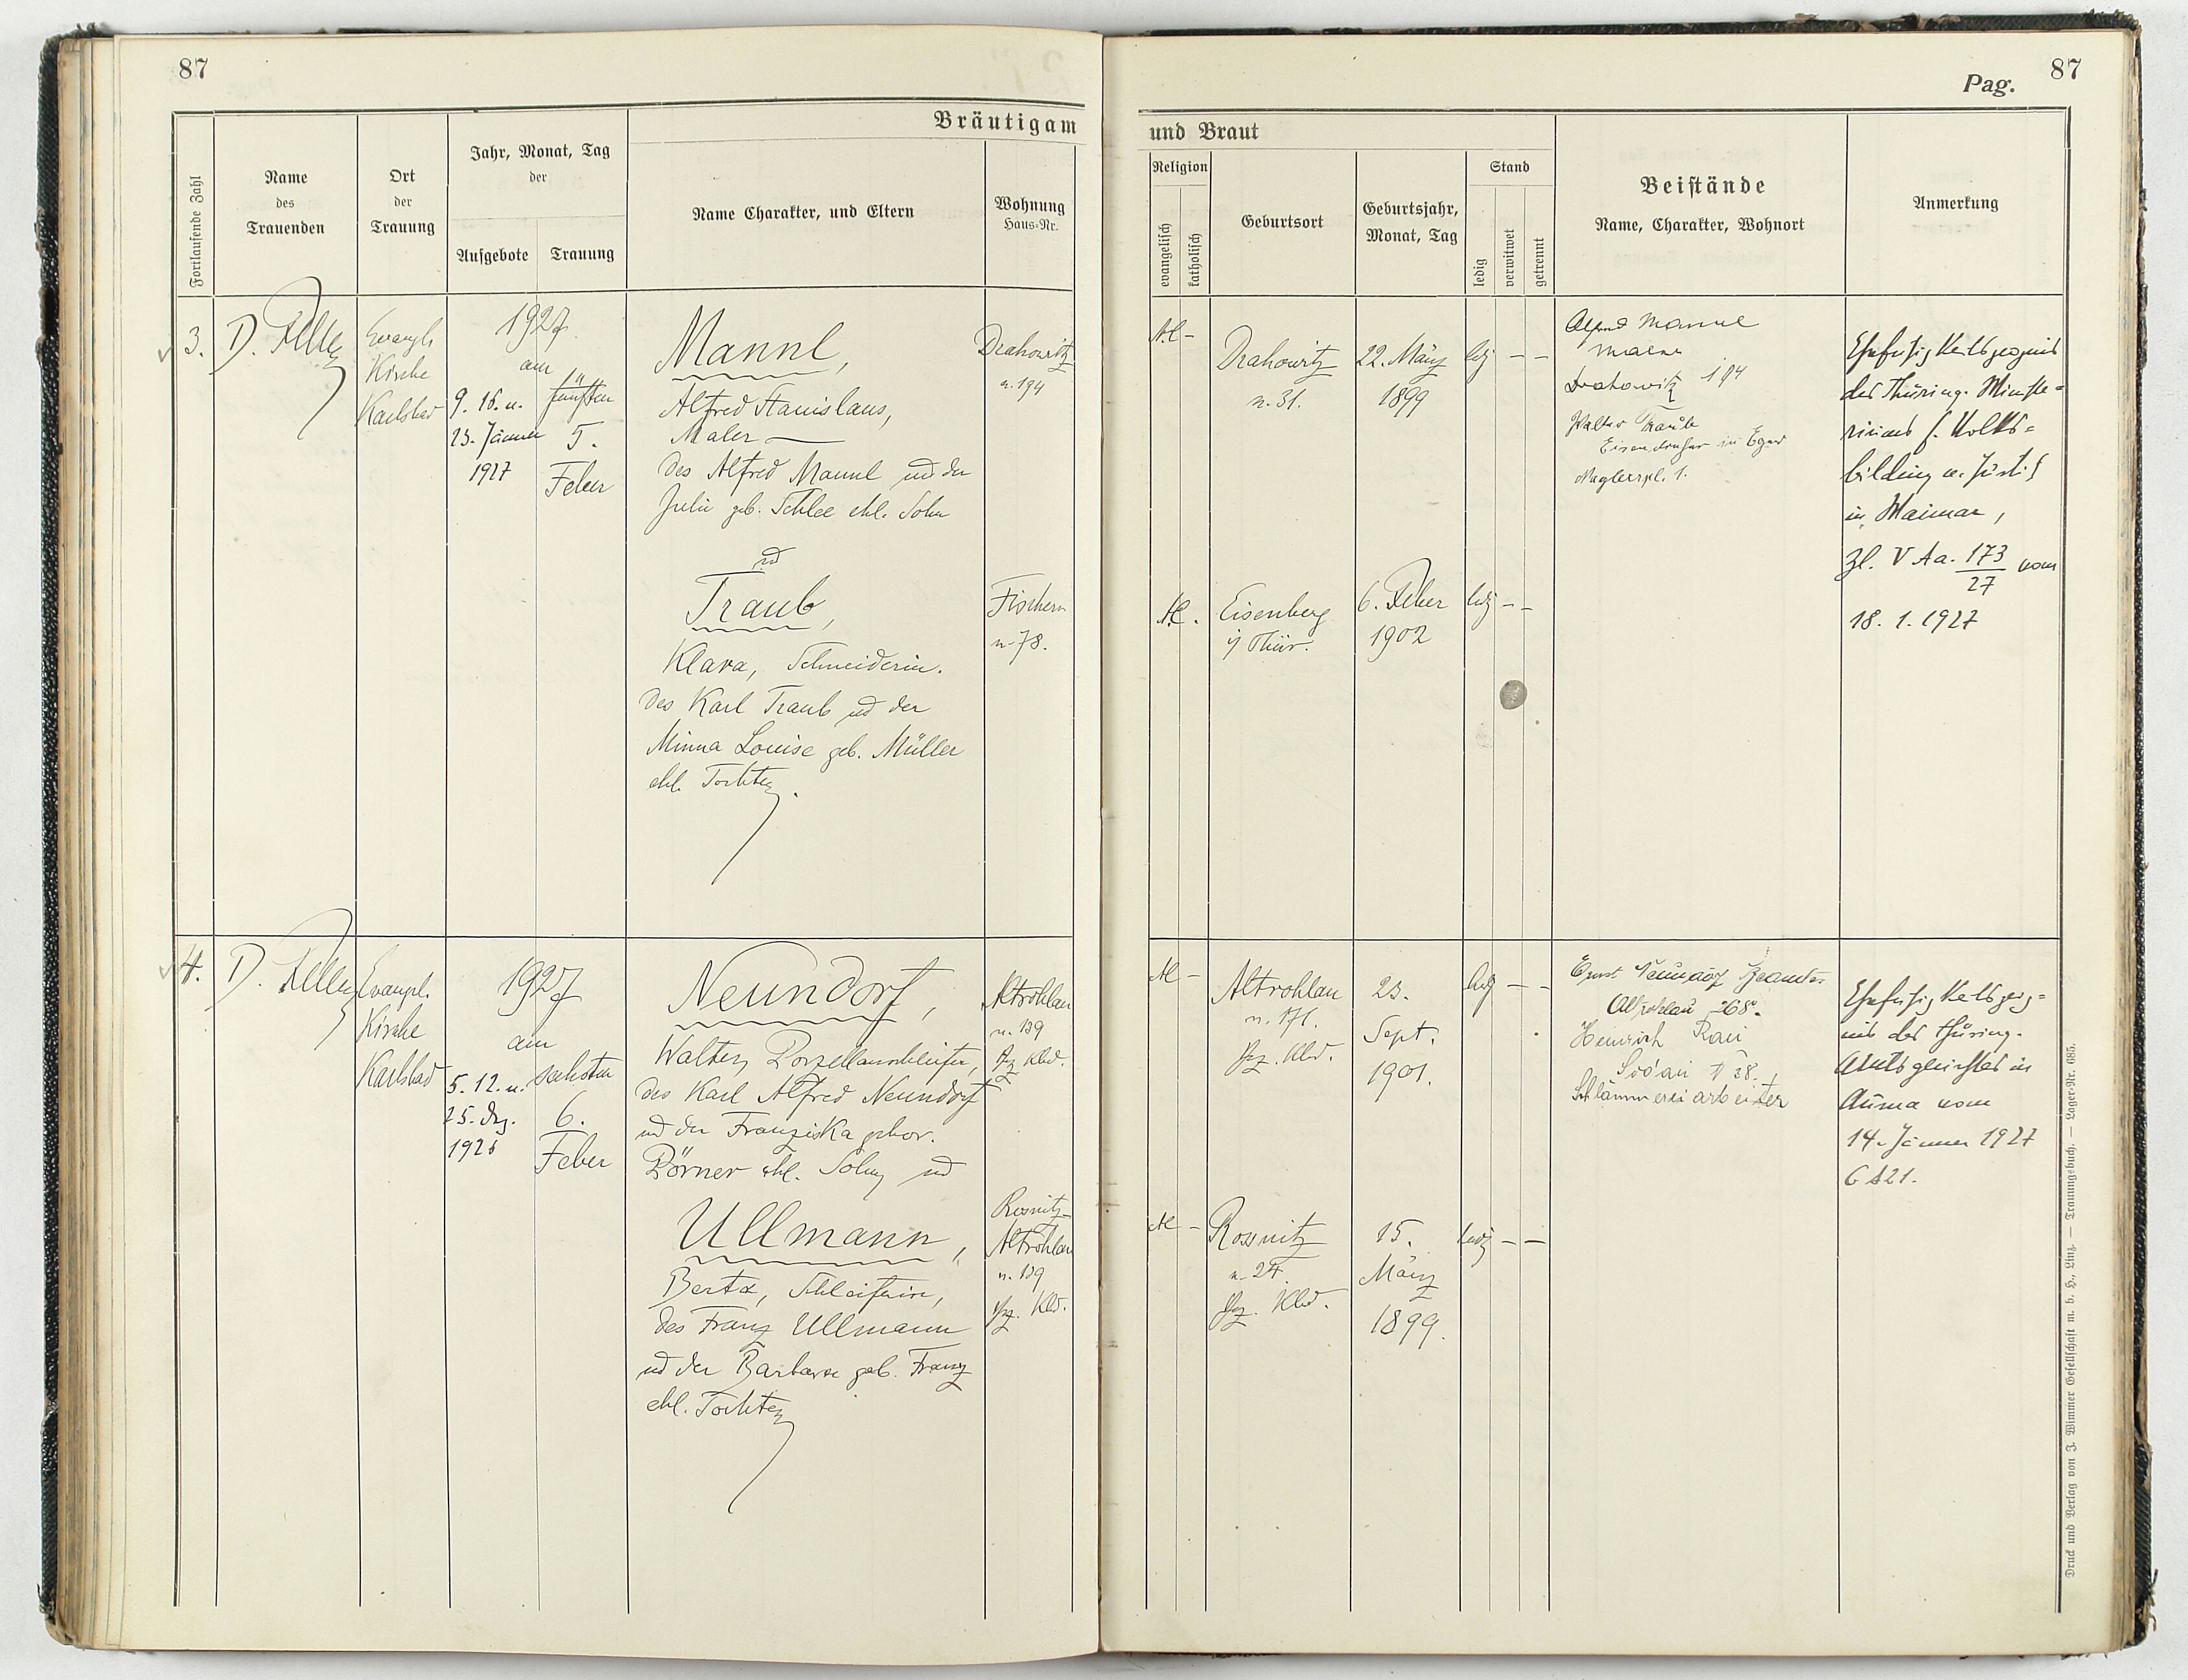 87
Bräutigam
Fortlaufende Zahl
Name
des
Trauenden
Ort
der
Trauung
Jahr, Monat, Tag
der
Aufgebote
Trauung
Name Charakter, und Eltern
Wohnung
Haus-Nr.
3.
Evangl.
Kirche
Karlsbad
1927
am
9. 16. u.
23. Jänner
1927
fünften
5.
Feber
Mannl,
Alfred Stanislaus,
Maler
des Alfred Mannl und der
Julie geb. Schlee ehl. Sohn
ud
Traub,
Klara, Schneiderin.
des Karl Traub ud der
Minna Louise geb. Müller
ehl. Tochter.
Drahowitz
n. 194
Fischern
n. 78.
4.
Evangel.
Kirche
Karlsbad
1927
am
5. 12. u.
25. Dez.
1926
sechsten
6.
Feber
Neundorf,
Walter, Porzellanschleifer,
des Karl Alfred Neundorf
ud der Franziska gebor.
Börner ehl. Sohn, ud
Ullmann,
Berta, Schleiferin,
des Franz Ullmann
ud der Barbara geb. Franz
ehl. Tochter
Altrohlau
n. 139
Bz. Kbd.
Rosnitz-
Altrohlau
n. 139
Bz. Kbd.
Pag. 87
und Braut
Religion
evangelisch
katholisch
Geburtsort
Geburtsjahr,
Monat, Tag
Stand
ledig
verwitwet
getrennt
Beistände
Name, Charakter, Wohnort
Anmerkung
Drahowitz
n. 31.
22. März
1899
ledg
Alfred Mannl
Maler
Drahowitz 194
Walter Traub
Eisendreher in Eger
Maglerspl. 1.
Ehefähigkeitszeugnis
des Thüring. Ministe=
riums f. Volks=
bildung u. Justiz
in Weimar,
Zl. V Aa. 173/27 vom
18. 1. 1927
Eisenberg
i/ Thür.
6. Feber
1902
ledg
Altrohlau
n. 171.
Bz. Kbd.
23.
Sept.
1901.
ledg
Ernst Neundorf Beamter
Altrohlau 268.
Heinrich Rau
Sodau N 38.
Schlämmereiarbeiter
Ehefähigkeitszeug=
nis des thüring.
Amtsgerichtes in
Auma vom
14. Jänner 1927
Rossnitz
n. 24.
Bz. Kbd.
15.
März
1899.
ledg
Druck und Verlag von J. Wimmer Gesellschaft m. b. H., Linz. — Trauungsbuch. — Lager-Nr. 685.